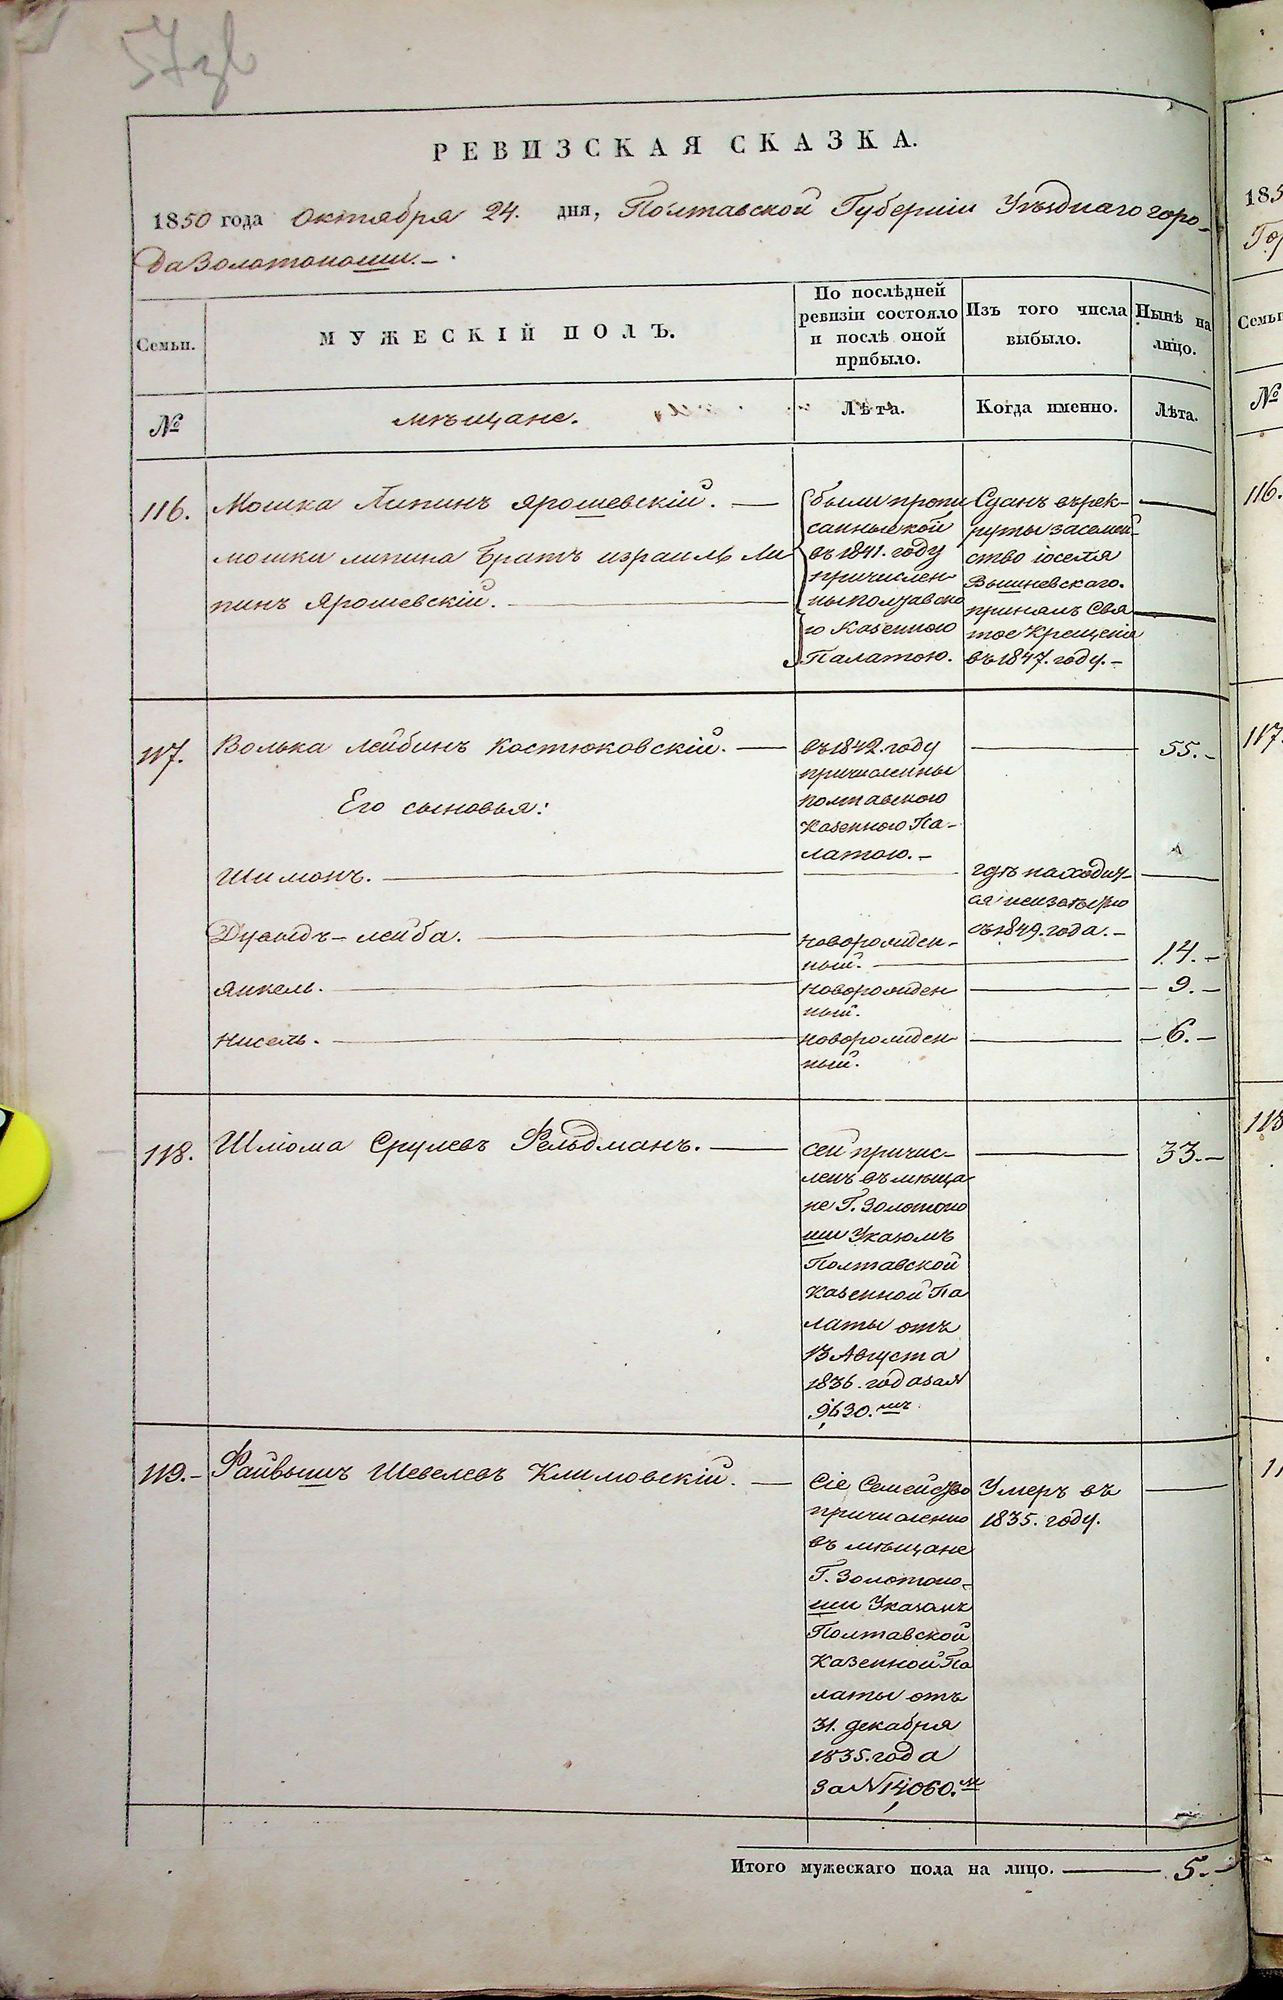 57зв
РЕВИЗСКАЯ СКАЗКА.
1850 года Октября 24. дня, Полтавской Губерніи Уѣзднаго горо-
да Золотоноши. -
Семьи.
МУЖЕСКІЙ ПОЛЪ.
По послѣдней
ревизіи состояло
и послѣ оной
прибыло.
Изъ того числа
выбыло.
Нынѣ на
лицо.
№
мѣщане.
Лѣта.
Когда именно.
Лѣта.
116.
Мошка Липинъ Ярошевскій. —
мошки липина Братъ израиль Ли
пинъ Ярошевскій. —
были пропи
санные кой
въ 1841. году
причислен
ны Полтавско
ю Казенною
Палатою.
Сданъ въ рек-
руты за семей-
ство іоселя
Вышневскаго.
принялъ Свя
тое Крещеніе
въ 1847. году. -
117.
Волька Лейбинъ Костюковскій. —
въ 1842. году
причислены
Полтавскою
Казенною Па-
латою. -
55. -
Его сыновья:
Шимонъ. —
гдѣ находит-
ся неизвѣстно
съ 1849. года. -
Дувидъ - лейба. —
новорожден-
ный. —
14. -
Янкель. —
новорожден
ный.
9. -
Нисель. —
новорожден
ный.
6. -
118.
Шліома Срулевъ Фельдманъ. —
сей причис-
ленъ въ мѣща
не Г. Золотоно
ши Указомъ
Полтавской
Казенной Па
латы отъ
13 Августа
1836. года за №
9630.мъ
33. -
119. -
Файвышъ Шевелевъ Климовскій. —
Сіе Семейство
причислено
въ мѣщане
Г. Золотоно-
ши Указомъ
Полтавской
Казенной Па
латы отъ
31. декабря
1835. года
За № 14060.м
Умеръ въ
1835. году.
Итого мужескаго пола на лицо. — 5. -
185
Гор
Семьи
№
116.
117.
118
11